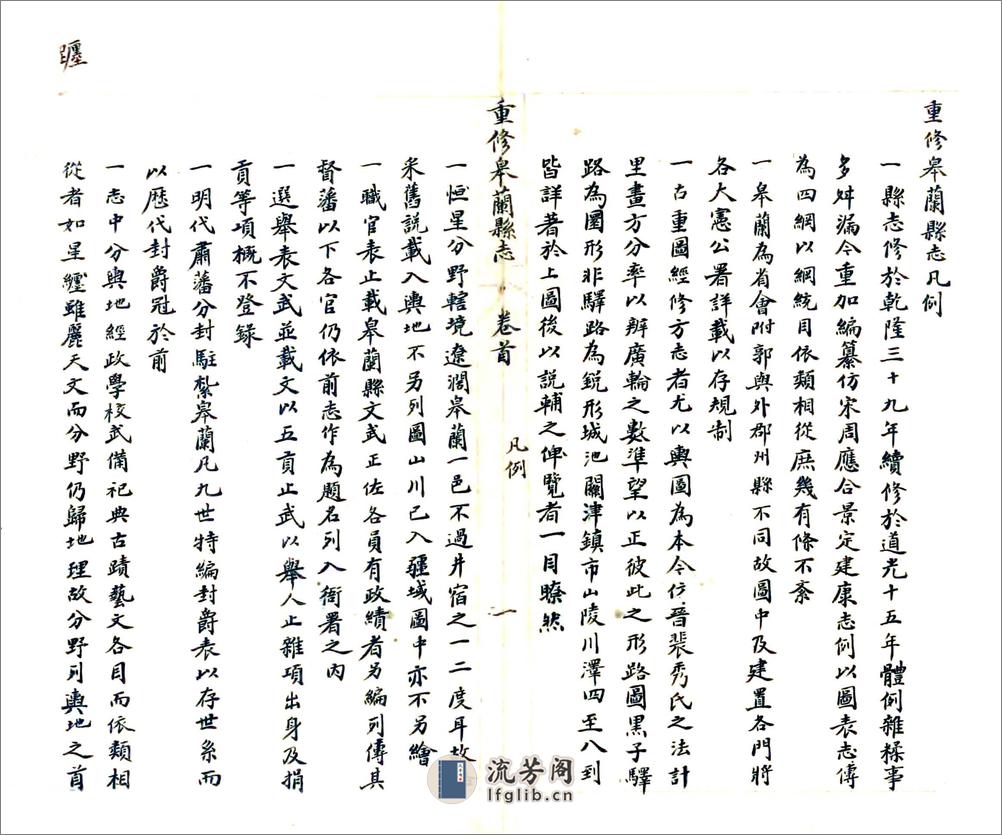 重修皋蘭縣志凡例
一縣志修於乾隆三十九年續修於道光十五年體例雜糅事
多舛漏今重加編纂仿宋周應合景定建康志例以圖表志傳
為四綱以綱統目依類相從庶幾有條不紊
一皋蘭為省會附郭與外郡州縣不同故圖中及建置各門將
各大憲公署詳載以存規制
一古重圖經修方志者尤以輿圖為本今仿晉裴秀氏之法計
里畫方分率以辨廣輪之數準望以正彼此之形路圖黑子驛
路為圓形非驛路為銳形城池關津鎮市山陵川澤四至八到
皆詳著於上圖後以說輔之俾覽者一目瞭然
重修皋蘭縣志 卷首 凡例 一
一恒星分野轄境遼濶皋蘭一邑不過井宿之一二度耳故
采舊說載入輿地不另列圖山川已入疆域圖中亦不另繪
一職官表止載皋蘭縣文武正佐各員有政績者另編列傳其
督藩以下各官仍依前志作為題名列入衙署之內
一選舉表文武並載文以五貢止武以舉人止雜項出身及捐
貢等項概不登錄
一明代肅藩分封駐紮皋蘭凡九世特編封爵表以存世系而
以歷代封爵冠於前
一志中分輿地經政學校武備祀典古蹟藝文各目而依類相
從者如星纏雖麗天文而分野仍歸地理故分野列輿地之首
躔
流芳阁
lfglib.cn